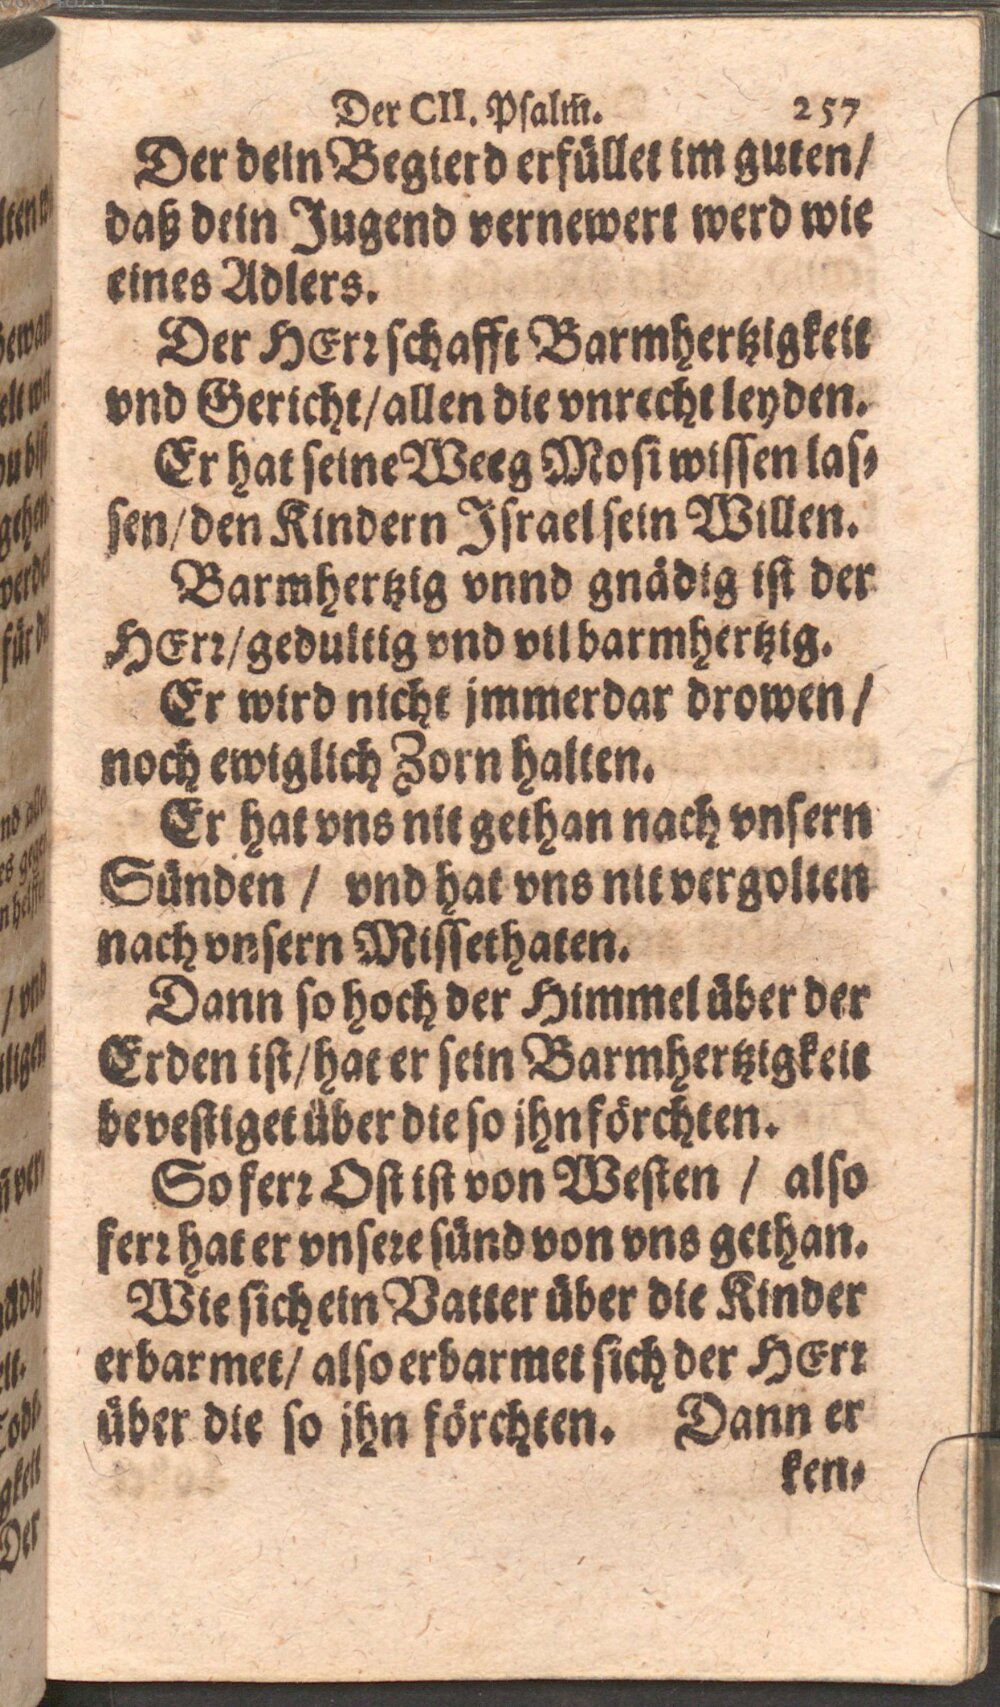 Der CII. Psalm̃. 257
Der dein Begierd erfüllet im guten/
daß dein Jugend vernewert werd wie
eines Adlers.
Der HErr schafft Barmhertzigkeit
vnd Gericht/allen die vnrecht leyden.
Er hat seine Weeg Mosi wissen las-
sen/den Kindern Israel sein Willen.
Barmhertzig vnnd gnädig ist der
HErr/gedultig vnd vil barmhertzig.
Er wird nicht jmmerdar drowen/
noch ewiglich Zorn halten.
Er hat vns nit gethan nach vnsern
Sünden / vnd hat vns nit vergolten
nach vnsern Missethaten.
Dann so hoch der Himmel über der
Erden ist/hat er sein Barmhertzigkeit
bevestiget über die so jhn förchten.
So ferr Ost ist von Westen / also
ferr hat er vnsere sünd von vns gethan.
Wie sich ein Vatter über die Kinder
erbarmet/ also erbarmet sich der HErr
über die so jhn förchten. Dann er
ken-